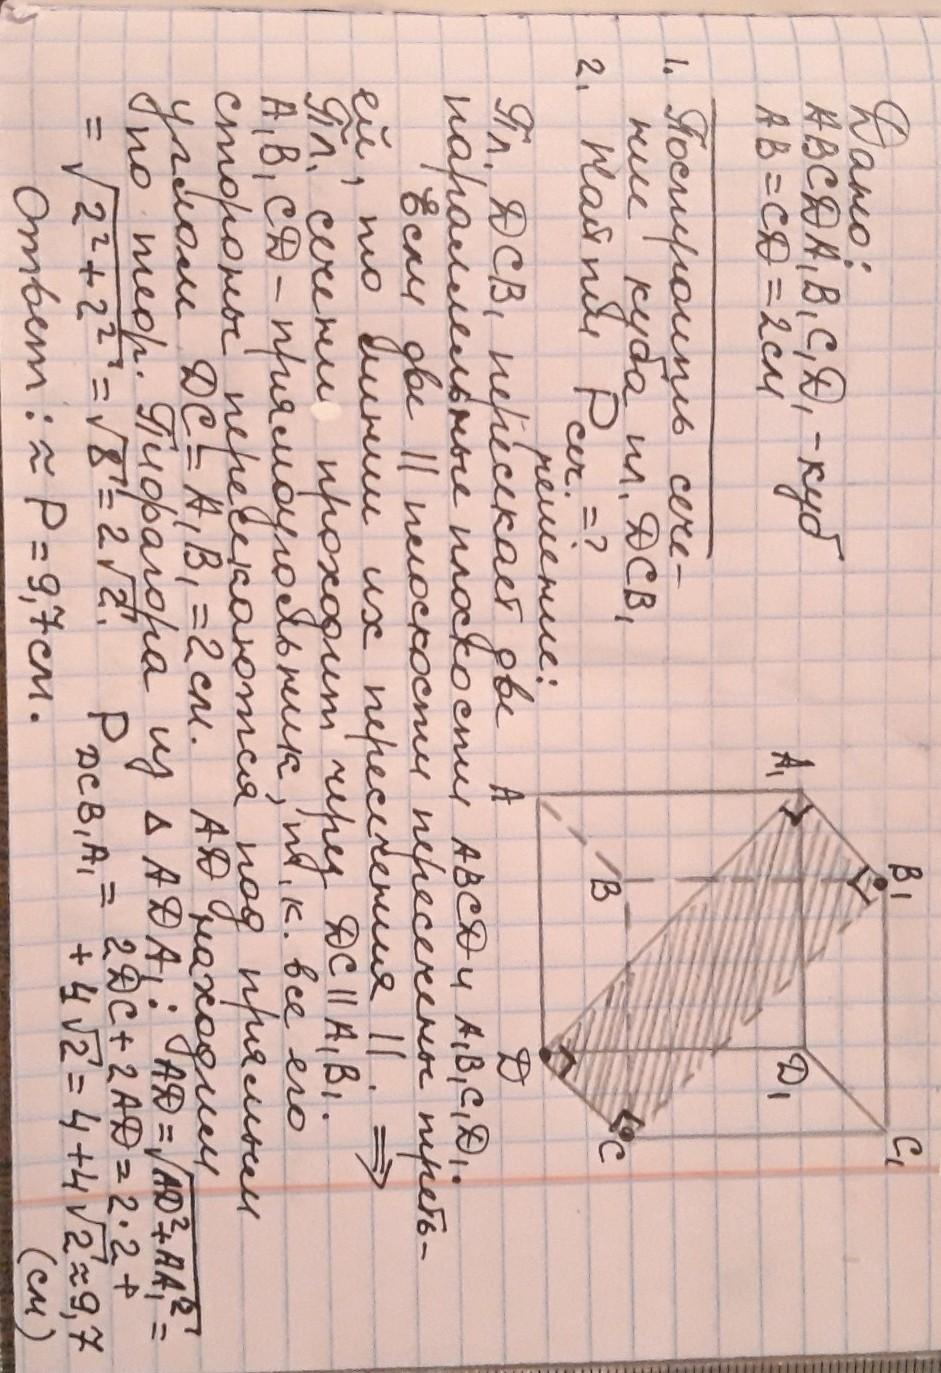 Дано:
ABCDA₁B₁C₁D₁ - куб
AB = CD = 2см
1. Построить сече-
ние куба пл. DCB₁
2. Найти P сеч. = ?
решение:
Пл. DCB₁ пересекает две
параллельные плоскости ABCD и A₁B₁C₁D₁.
Если две || плоскости пересечены треть-
ей, то линии их пересечения ||. ⟹
Пл. сечени проходит через DC || A₁B₁.
A₁B₁CD - прямоугольник, т.к. все его
стороны пересекаются под прямым
углом DC = A₁B₁ = 2см. AD находим
по теор. Пифагора из Δ ADA₁: AD = √AD² + AA₁² =
= √2² + 2² = √8 = 2√2. P DCB₁A₁ = 2DC + 2AD = 2·2 +
+ 4√2 = 4 + 4√2 ≈ 9,7
(см)
Ответ: ≈ P = 9,7см.
A₁
B₁
D₁
C₁
A
B
D
C